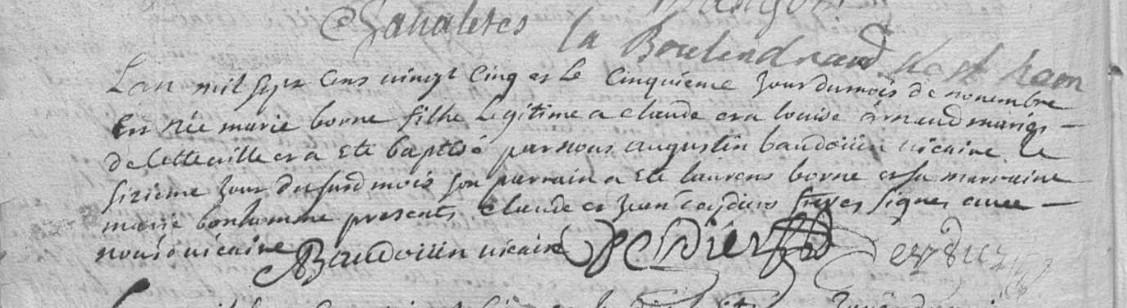 la
Lan mil sept cens vingt cinq et le cinquieme jour du mois de novembre
est née marie borne fille legitime a claude et a louise arnaud mariés
de cette ville et a ete baptisé par nous augustin baudoüin vicaire le
sixieme jour du susd mois son parrain a ete laurens borne et sa marraine
marie bonhomme presents claude et jean freres signes avec
nous vicaire Baudoüin vicaire